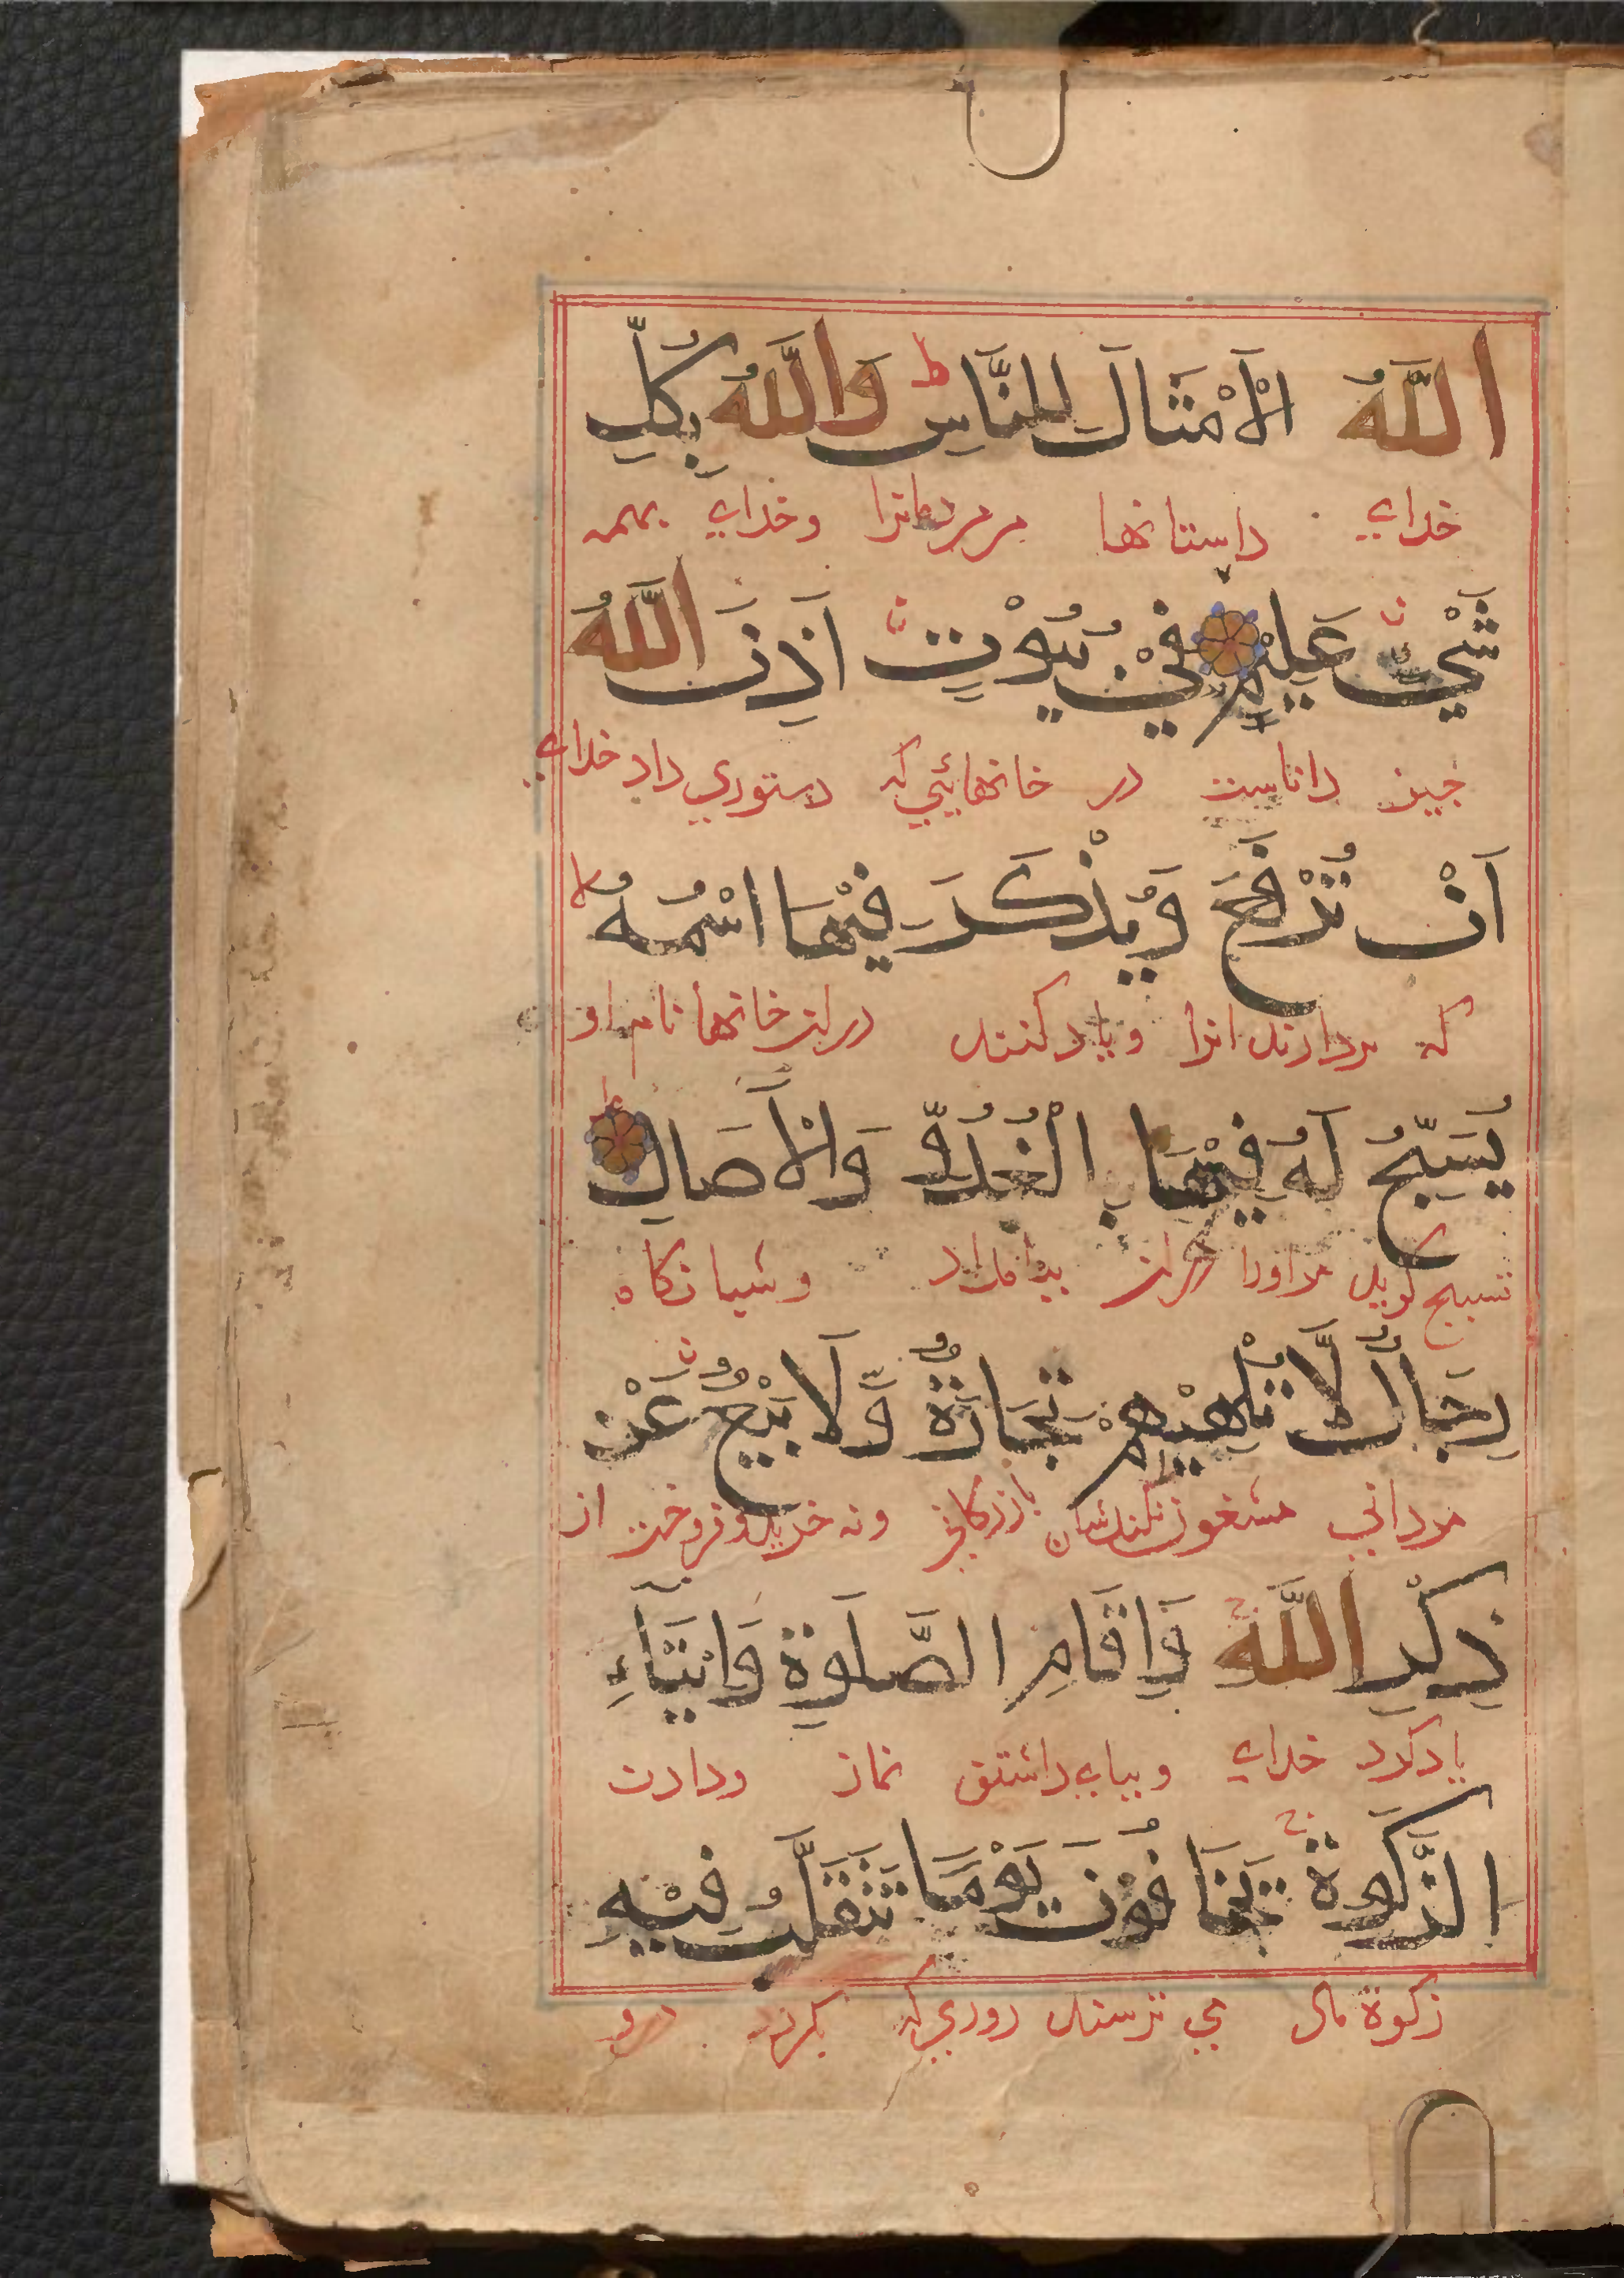 اللَّهُ الْأَمْثَالَ لِلنَّاسِ ط وَاللَّهُ بِكُلِّ
خدای داستانها مر مردمانرا وخدای بهمه
شَيْءٍ عَلِيْمٌ فِيْ بُيُوْتٍ اَذِنَ اللَّهُ
چیز داناست در خانهائیی که دستوری داد خدای
اَنْ تُرْفَعَ وَيُذْكَرَ فِيْهَا اسْمُهُ لا
که بردارند انرا ویاد کنند دران خانها نام او
يُسَبِّحُ لَهُ فِيْهَا بِالْغُدُوِّ وَالْآصَالِ
تسبیح گویند مراورا دران بامداد وشبانگاه
رِجَالٌ لَّا تُلْهِيْهِمْ تِجَارَةٌ وَّلَا بَيْعٌ عَنْ
مردانی مشغول نکندشان بازرگانی ونه خرید وفروخت از
ذِكْرِ اللَّهِ وَاِقَامِ الصَّلَوةِ وَاِيْتَآءِ
یاد کرد خدای وبپای داشتن نماز ودادن
الزَّكَوةِ يَخَافُوْنَ يَوْمًا تَتَقَلَّبُ فِيْهِ
زکوة مال می ترسند روزی که بگردد درو